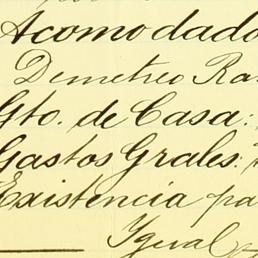 Acomodado
Demetreo Ra
Gto. de Casa:
Gastos Grales:
Existencia pa
Ygual